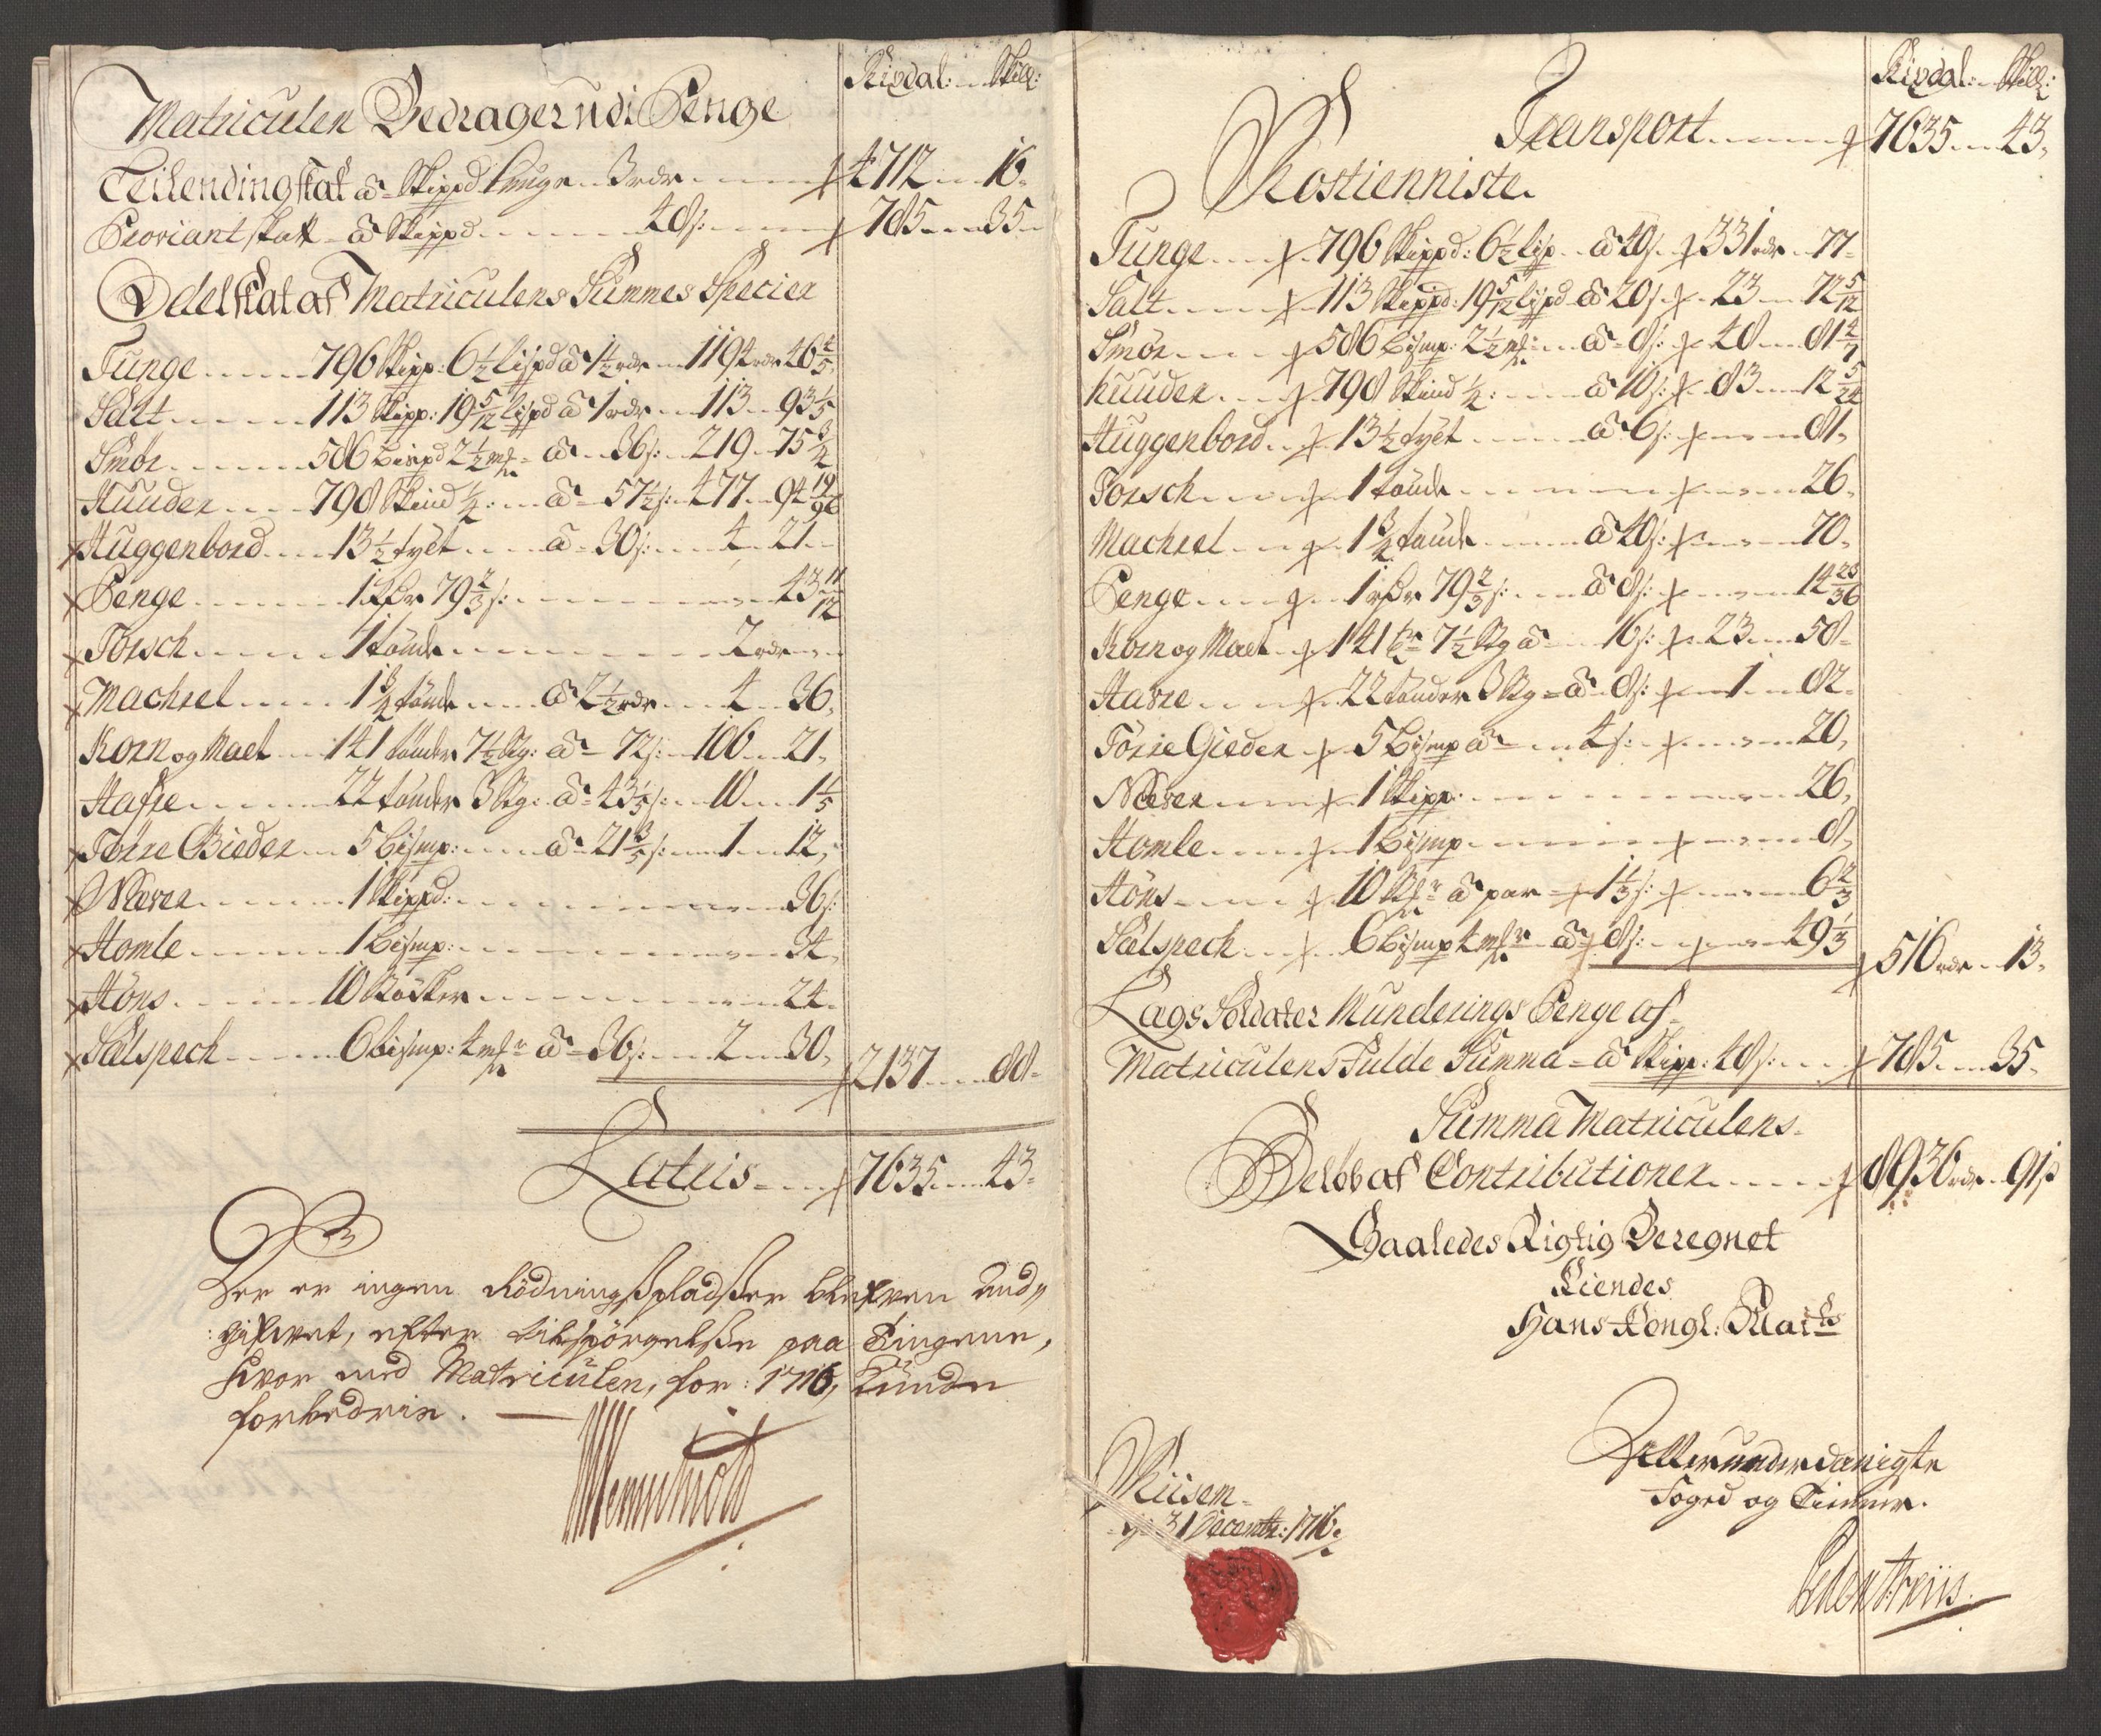 Rixdal: Skill:
Matriculen Bedrager udi Penge
Leilendingskat â Skippd tunge 3 rdr 4712 16
Proviantskatt â Skippd 48 s: 785 35
Odelskat af Matriculens Summes Specier
Tunge 796 Skipp: 6½ lispd â 1½ rdr 1194 rdr 46 4/5
Salt 113 Skipp: 19 5/12 lispd â 1 rdr 113 93 1/5
Smör 586 bispd 2½ mk â 36 s: 219 75 3/4
Huuder 798 Skind ½: â 57½ s: 477 94 19/96
Huggenbord 13½ tylt â 30 s: 4 21
Penge 1 rdr 79 2/3 s: 43 11/12
Torsch 1 tönde 2 rdr
Machrel 1¾ tönde â 2½ rdr 4 36
Korn og Malt 141 tönder 7½ Stg: â 72 s: 106 21
Hafre 22 tönder 3 Stg: â 43 1/5 s: 10 1 1/5
Törre Gieder 5 bismp: â 21 3/5 s: 1 12
Næver 1 Skippd: 36 s:
Homle 1 bismp: 34
Höns 10 Stöcker 24
Sælspech 6 bismp: 4 mkr â 36 s: 2 30
2137 88
Latris 7635 43
Der er ingen Rödningspladser blefven and-
gifvet, efter tilspörgelse paa Tingene,
hvor med Matriculen, for: 1716, kunde
forbedris.
Rixdal: Skill:
Transport 7635 43
Rostienniste
Tunge 796 Skippd: 6½ lisp â 40 s 331 rdr 77
Salt 113 Skippd: 19 5/12 lispd â 20 s 23 72 5/12
Smör 586 bismp: 2½ mk: â 8 s: 48 81 4/7
huuder 798 Skind ½: â 10 s: 83 12 5/24
Huggenbord 13½ tylt â 6 s: 81
Torsch 1 tönde 26
Machrel 1¾ tönde â 40 s: 70
Penge 1 rdr 79 2/3 s: â 8 s: 14 23/36
Korn og Malt 141 tr 7½ Stg â 16 s: 23 58
Havre 22 tönder 3 Stg â 8 s: 1 82
Törre Gieder 5 bismp â 4 s: 20
Næver 1 Skipp: 26
Homle 1 bismp 8
Höns 10 Str â par 1 1/3 s: 6 2/3
Sælspech 6 bismp 4 mkr â 8 s: 49 1/3
516 rdr 13
Lags Soldater Munderings Penge af
Matriculens Fulde Summa â Skipp: 48 s: 785 35
Summa Matriculens
Belöb af Contributioner 8936 rdr 91 s
Saaledes Rigtig Beregnet
Kiendes
Hans Kongl: Maits
Allerunderdanigste
Foged og Tienner.
Riisem
d: 31 Decembr: 1716.
Peder Friis